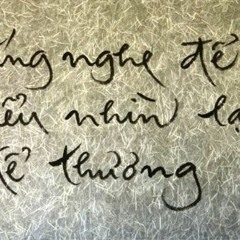 ắng nghe để
ểu nhìn lạ
để thương